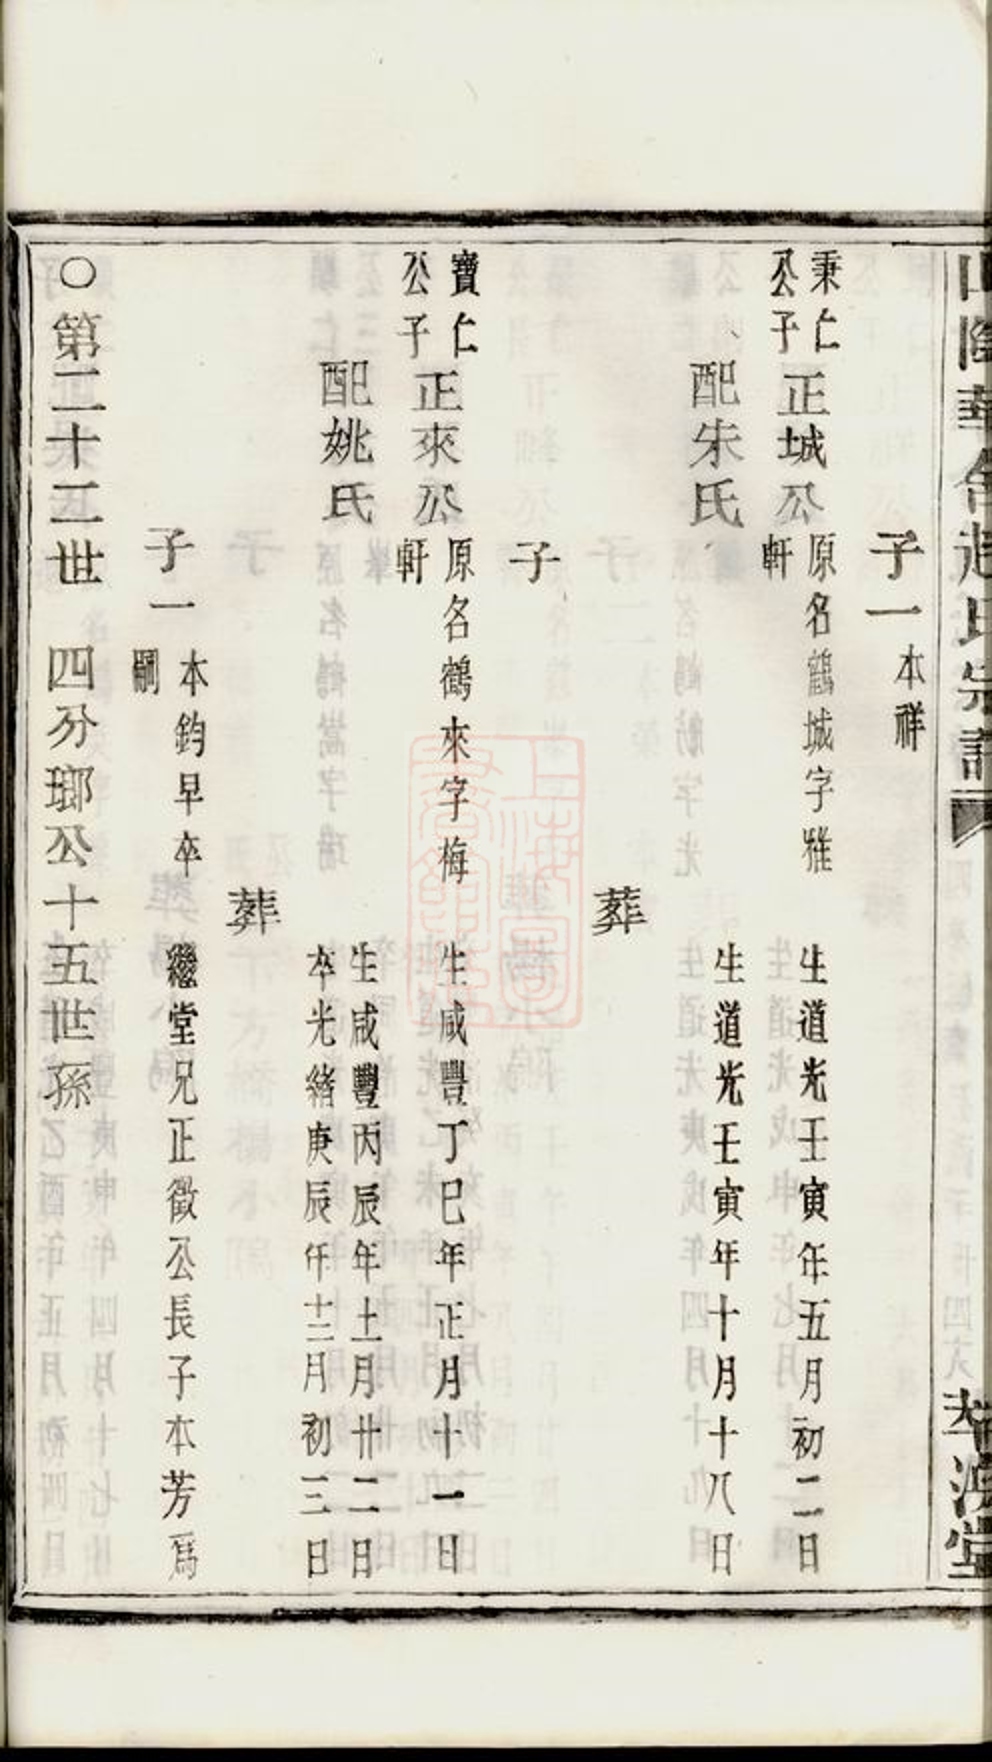 山陰華舍趙氏宗譜
子一 本祥
秉仁公子 正城公 原名鶴城字雅軒 生道光壬寅年五月初二日
配朱氏 生道光壬寅年十月十八日
子 葬
寶仁公子 正來公 原名鶴來字梅軒 生咸豐丁巳年正月十一日
配姚氏 生咸豐丙辰年十一月廿二日
卒光緒庚辰年十二月初三日
葬
子一 本鈞早卒 繼堂兄正徵公長子本芳爲嗣
○第二十三世 四分瑯公十五世孫
上海圖書館藏